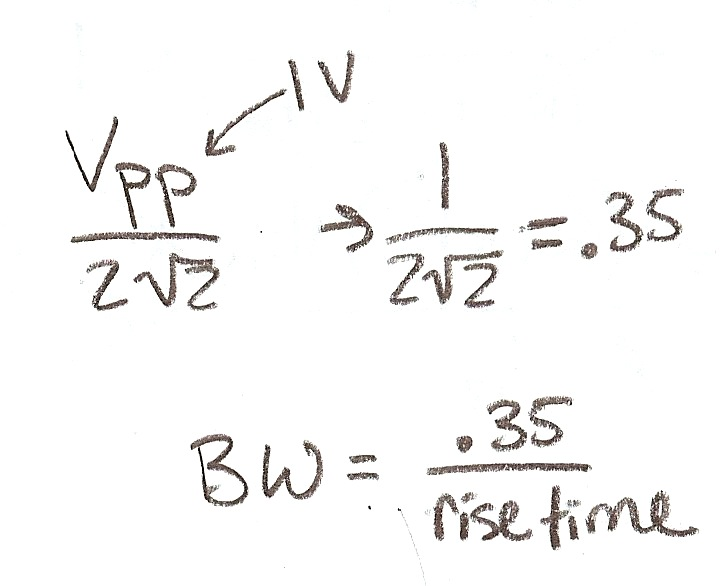 1V
Vpp / 2√2 → 1 / 2√2 = .35
BW = .35 / rise time